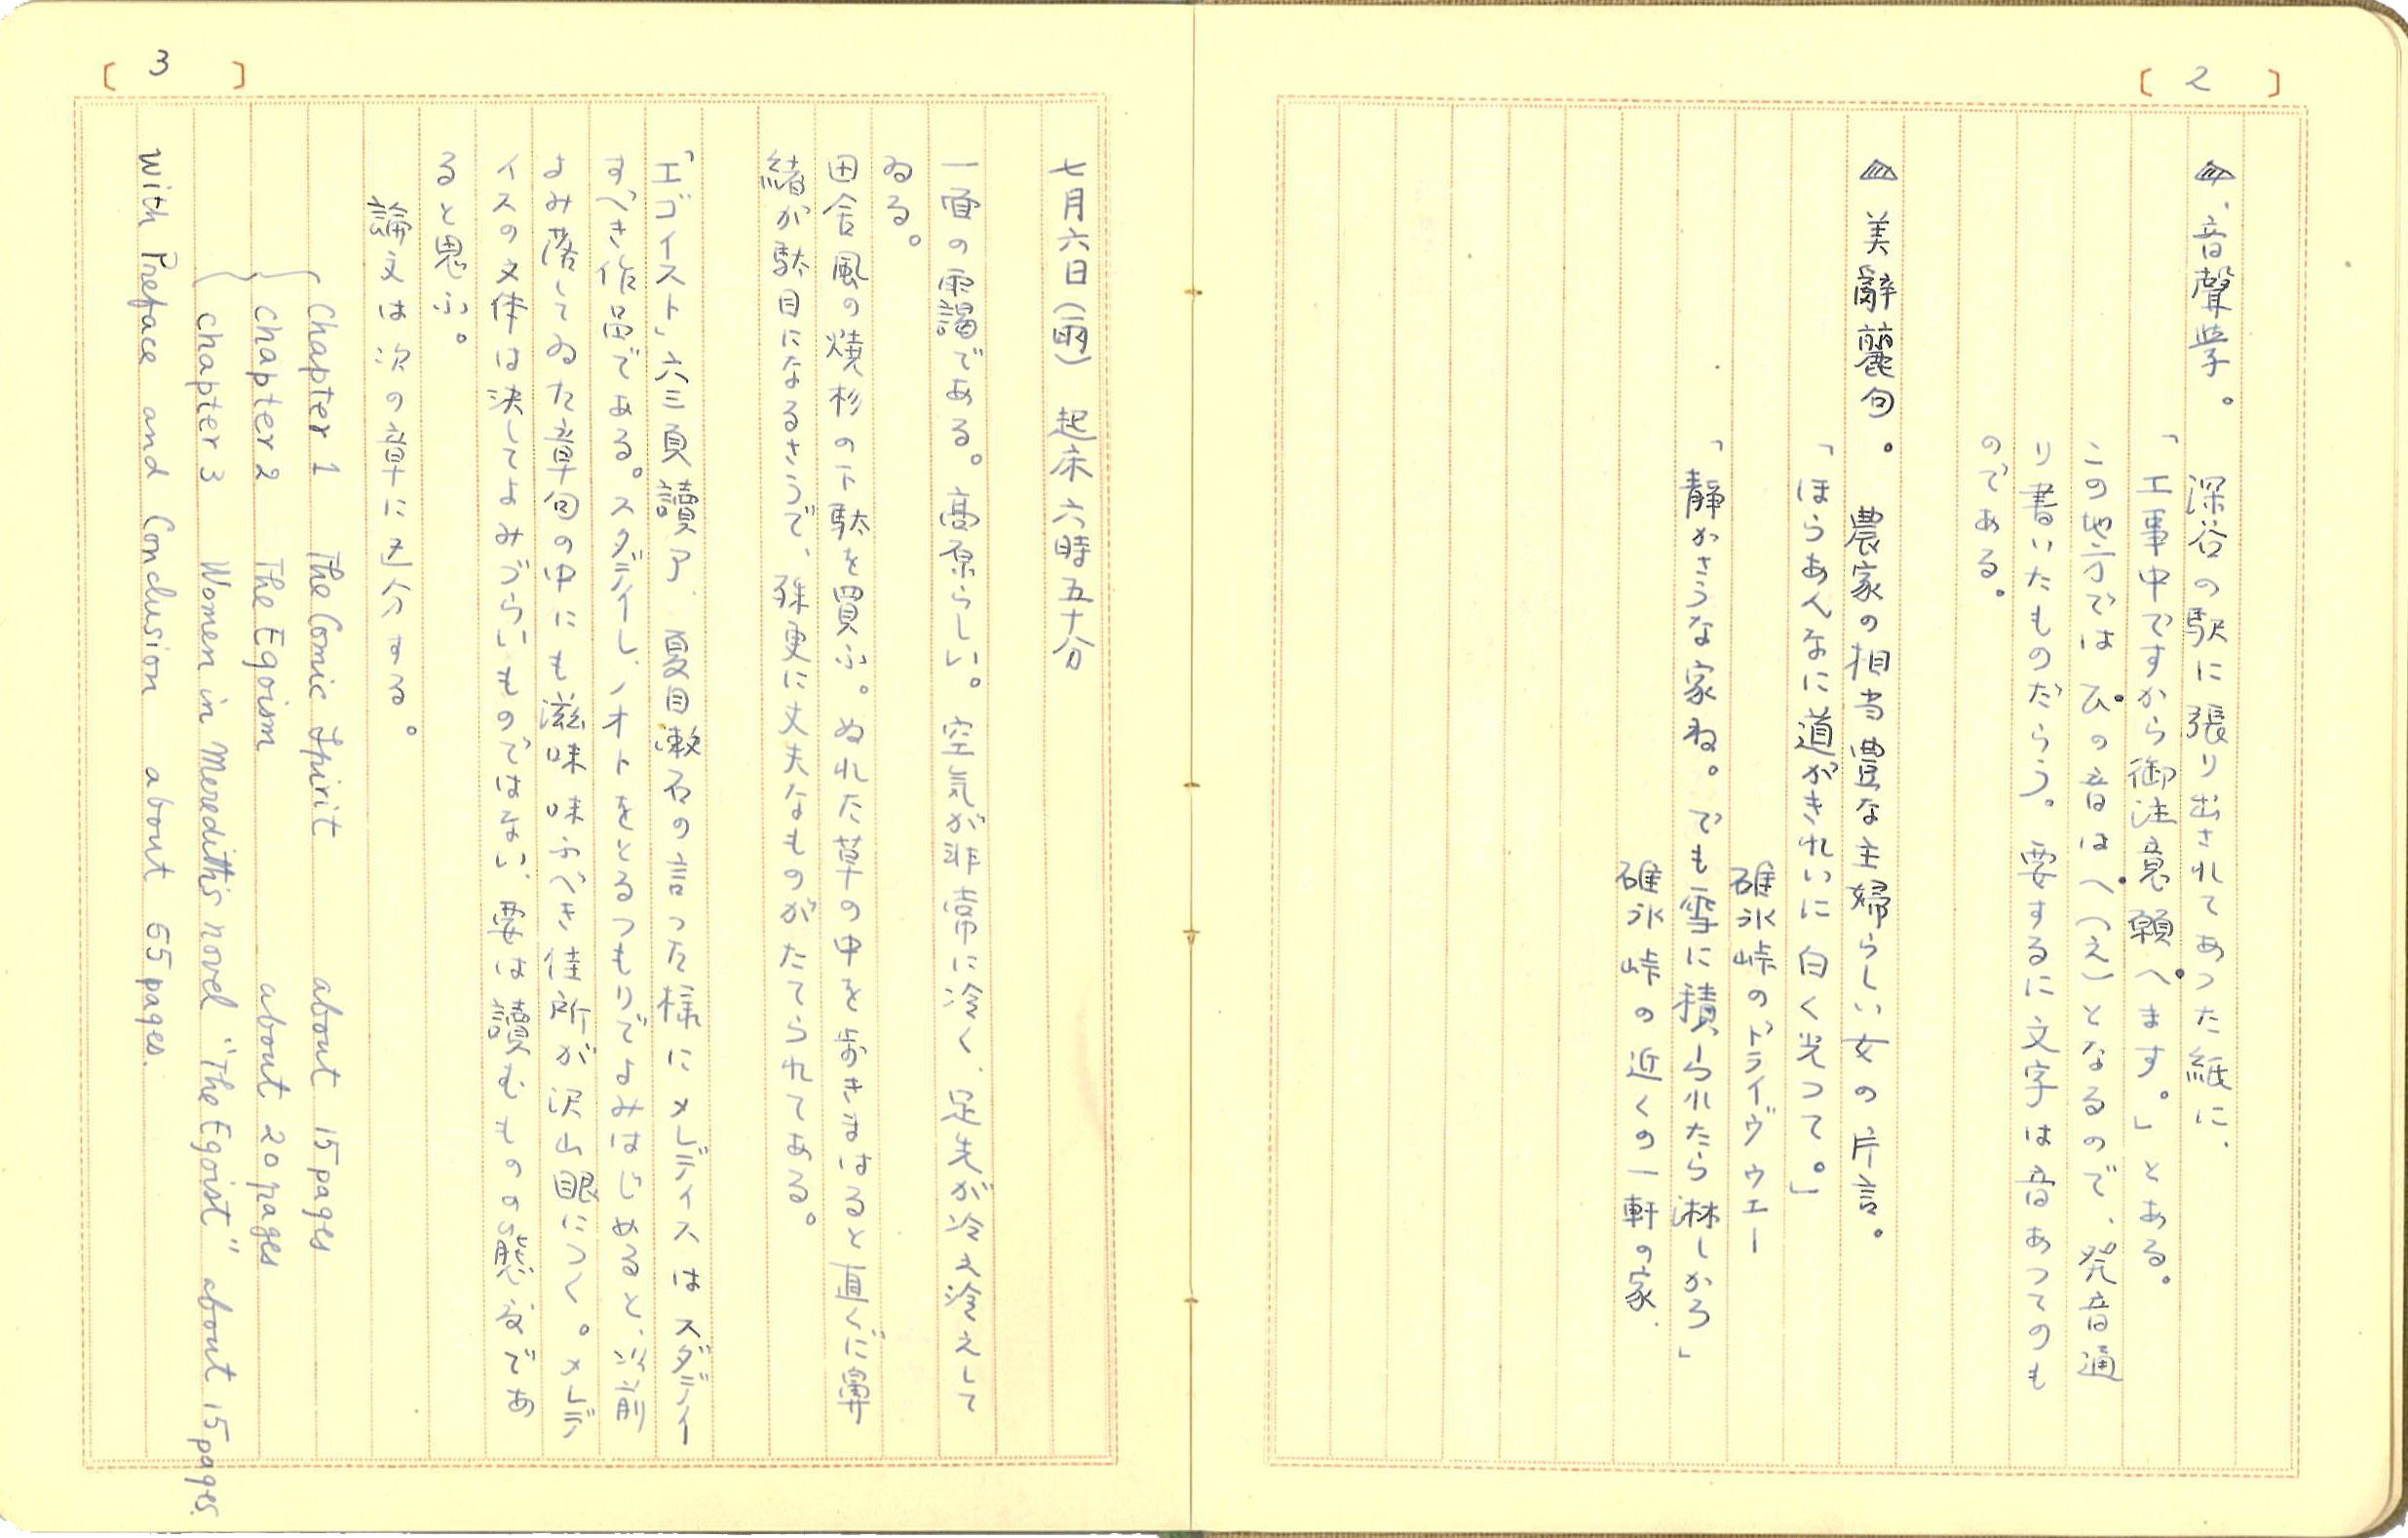 2
音聲学。 深谷の駅に張り出されてあった紙に、
「工事中ですから御注意願へます。」とある。
この地方ではひの音はへ(え)となるので、発音通
り書いたものだらう。要するに文字は音あってのも
のである。
美辭麗句。 農家の相当豊な主婦らしい女の片言。
「ほらあんなに道がきれいに白く光って。」
碓氷峠のドライヴウエー
「静かさうな家ね。でも雪に積られたら淋しかろ」
碓氷峠の近くの一軒の家.
3
七月六日(雨) 起床六時五十分
一面の雨靄である。高原らしい。空気が非常に冷く、足先が冷え冷えして
ゐる。
田舎風の焼杉の下駄を買ふ。ぬれた草の中を歩きまはると直ぐに鼻
緒が駄目になるさうで、殊更に丈夫なものがたてられてある。
「エゴイスト」六三頁讀了 夏目漱石の言った様にメレディスはスタディー
すべき作品である。スタディーし、ノオトをとるつもりでよみはじめると、以前
よみ落してゐた章句の中にも滋味味ふべき佳所が沢山眼につく。メレデ
ィスの文体は決してよみづらいものではない、要は讀むものの態度であ
ると思ふ。
論文は次の章に区分する。
Chapter 1 The Comic Spirit about 15 pages
Chapter 2 The Egoism about 20 pages
Chapter 3 Women in Meredith's novel "The Egoist" about 15 pages.
With Preface and Conclusion about 55 pages.